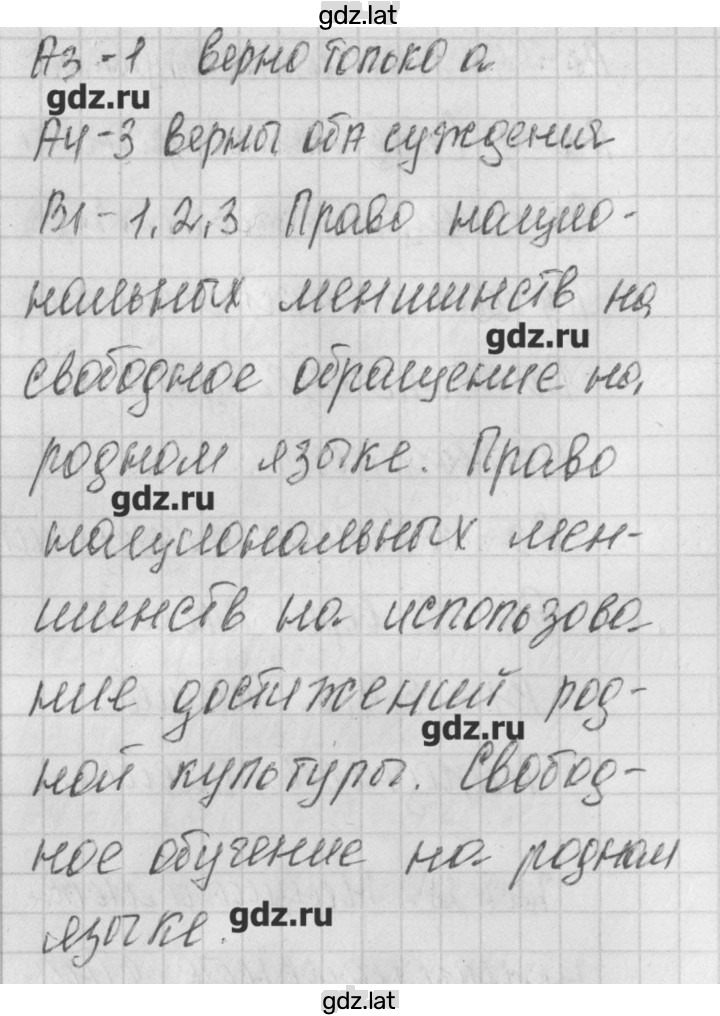 gdz.lat
А3-1 верно только а
gdz.ru
А4-3 верны оба суждения
В1-1,2,3 Право нацио-
нальных меншинств на
gdz.ru
свободное обращение на
родном языке. Право
gdz.ru
национальных мен-
шинств на использова
ние достижений род-
gdz.ru
ной культуры. Свобод-
ное обучение на родном
языке.
gdz.ru
gdz.lat